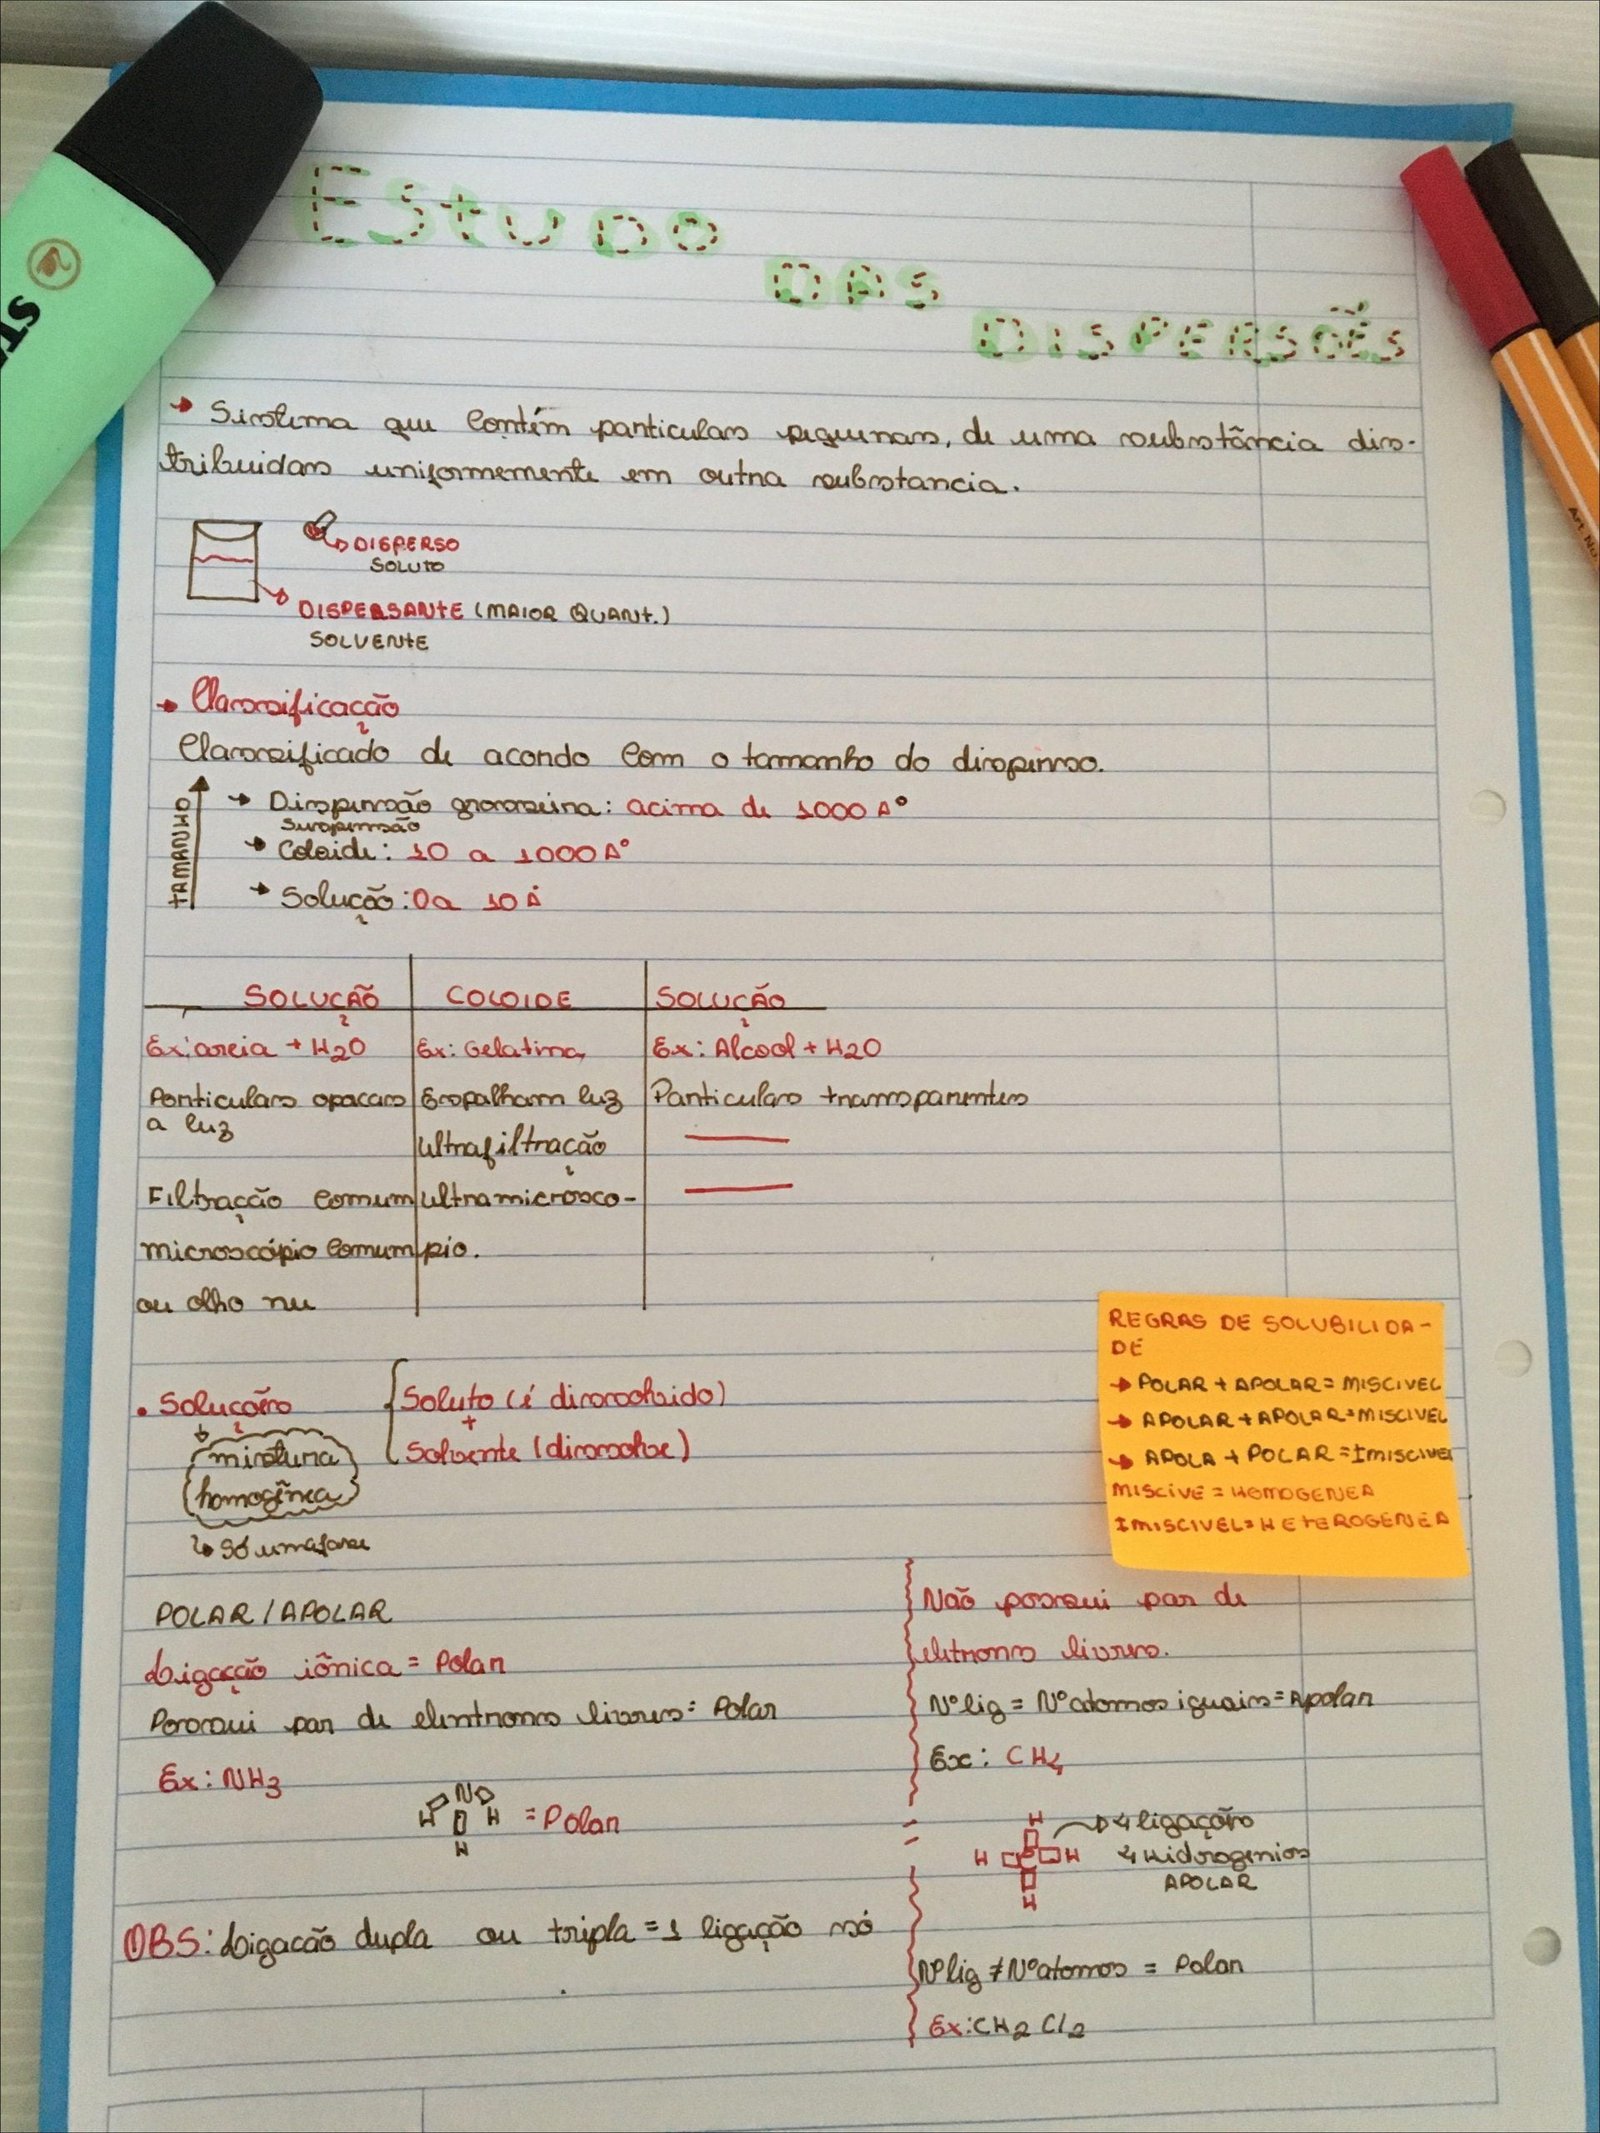 Estudo
das
Dispersões
→ Sistema que contém particulas pequenas, de uma substância dis-
tribuidas uniformemente em outra substancia.
→ DISPERSO
SOLUTO
DISPERSANTE (MAIOR QUANT.)
SOLVENTE
→ Classificação
Classificado de acordo com o tamanho do disperso.
TAMANHO
→ Dispersão grosseira: acima de 1000 A°
Suspensão
→ Coloide: 10 a 1000 A°
→ Solução: 0 a 10 Å
SOLUÇÃO COLOIDE SOLUÇÃO
Ex: areia + H2O Ex: Gelatina, Ex: Alcool + H2O
Particulas opacas Espalham luz Particulas transparentes
a luz
ultrafiltração
Filtração comum ultramicrosco-
microscópio comum pio.
ou olho nu
REGRAS DE SOLUBILIDA-
DE
→ POLAR + APOLAR = MISCIVEL
→ APOLAR + APOLAR = MISCIVEL
→ APOLA + POLAR = IMISCIVEL
MISCIVE = HOMOGENEA
IMISCIVEL = HETEROGENEA
• Soluções Soluto (é dissolvido)
+
Solvente (dissolve)
mistura
homogênea
↳ Só uma fase
POLAR / APOLAR
Ligação iônica = Polar
Possui par de elentrons livres = Polar
Ex: NH3
N
H H = Polar
H
OBS: Ligacão dupla ou tripla = 1 ligação só
Não possui par de
eletrons livres.
N° lig = N° atomos iguais = Apolar
Ex: CH4
H → 4 ligações
H C H 4 Hidrogenios
H APOLAR
N° lig ≠ N° atomos = Polar
Ex: CH2 Cl2